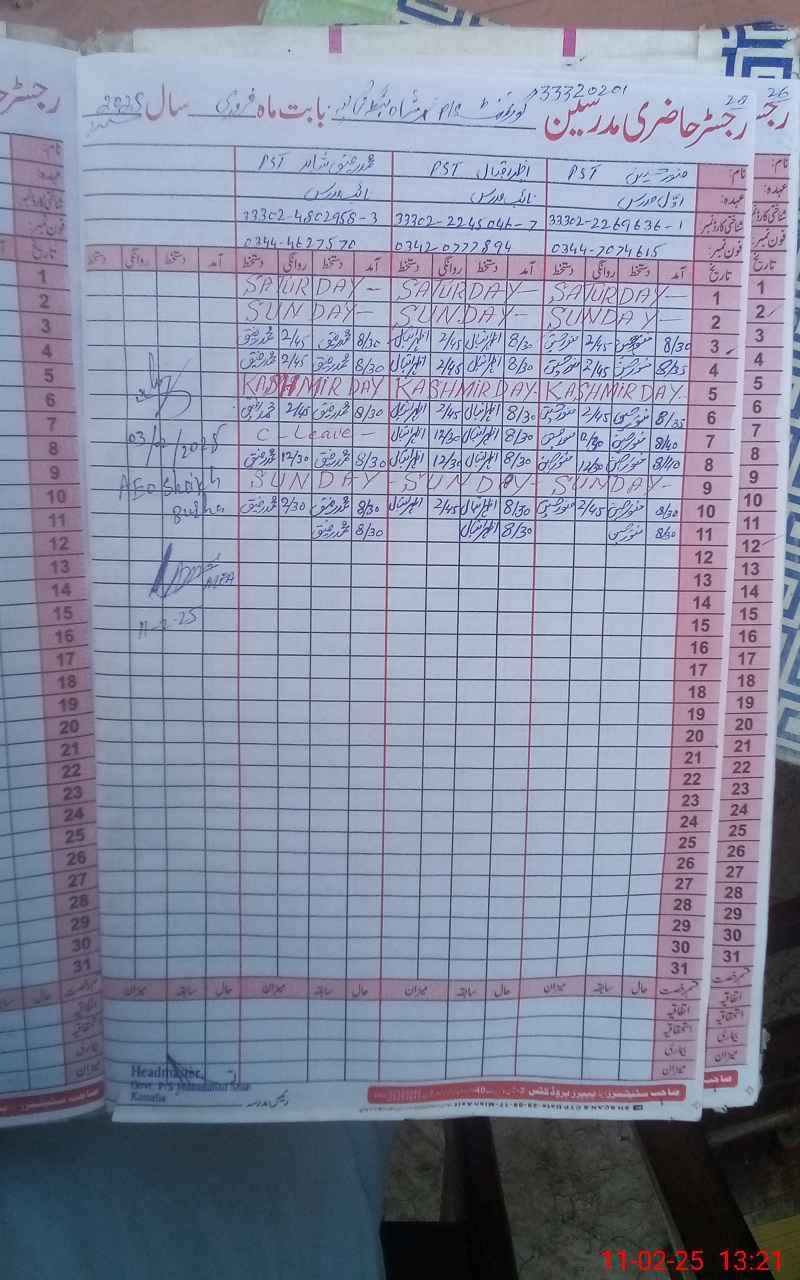 33320201
رجسٹر حاضری مدرسین گورنمنٹ P/S محمد شاہ بابت ماہ فروری سال 2025
نام: منور حسین PST اظہر اقبال PST محمد رفیق شاہد PST
عہدہ: اول مدرس نائب مدرس نائب مدرس
شناختی کارڈ نمبر 33302-2269636-1 33302-2245046-7 33302-4802958-3
فون نمبر: 0344-7074615 0342-0777894 0344-4627570
تاریخ آمد دستخط روانگی دستخط آمد دستخط روانگی دستخط آمد دستخط روانگی دستخط آمد دستخط روانگی دستخط
1 SATURDAY- SATURDAY- SATURDAY-
2 SUNDAY- SUNDAY- SUNDAY-
3 8/30 منور حسین 2/45 منور حسین 8/30 اظہر اقبال 2/45 اظہر اقبال 8/30 محمد رفیق 2/45 محمد رفیق
4 8/35 منور حسین 2/45 منور حسین 8/30 اظہر اقبال 2/45 اظہر اقبال 8/30 محمد رفیق 2/45 محمد رفیق
5 KASHMIR DAY KASHMIR DAY- KASHMIR DAY-
6 8/35 منور حسین 2/45 منور حسین 8/30 اظہر اقبال 2/45 اظہر اقبال 8/30 محمد رفیق 2/45 محمد رفیق
7 8/40 منور حسین 12/30 منور حسین 8/30 اظہر اقبال 12/30 اظہر اقبال C-Leave-
8 8/40 منور حسین 12/30 منور حسین 8/30 اظہر اقبال 12/30 اظہر اقبال 8/30 محمد رفیق 12/30 محمد رفیق
9 SUNDAY- SUNDAY- SUNDAY-
10 8/30 منور حسین 2/45 منور حسین 8/30 اظہر اقبال 2/45 اظہر اقبال 8/30 محمد رفیق 2/30 محمد رفیق
11 8/30 منور حسین 8/30 اظہر اقبال 8/30 محمد رفیق
12
13
14
15
16
17
18
19
20
21
22
23
24
25
26
27
28
29
30
31
03/2/2025
AEO
11-2-25
حال سابقہ میزان حال سابقہ میزان حال سابقہ میزان حال سابقہ میزان
اتفاقیہ
استحقاقیہ
بیماری
میزان
Headmaster
Govt. P/S Muhammad Shah
Kamalia
رئیس مدرسہ
11-02-25 13:21